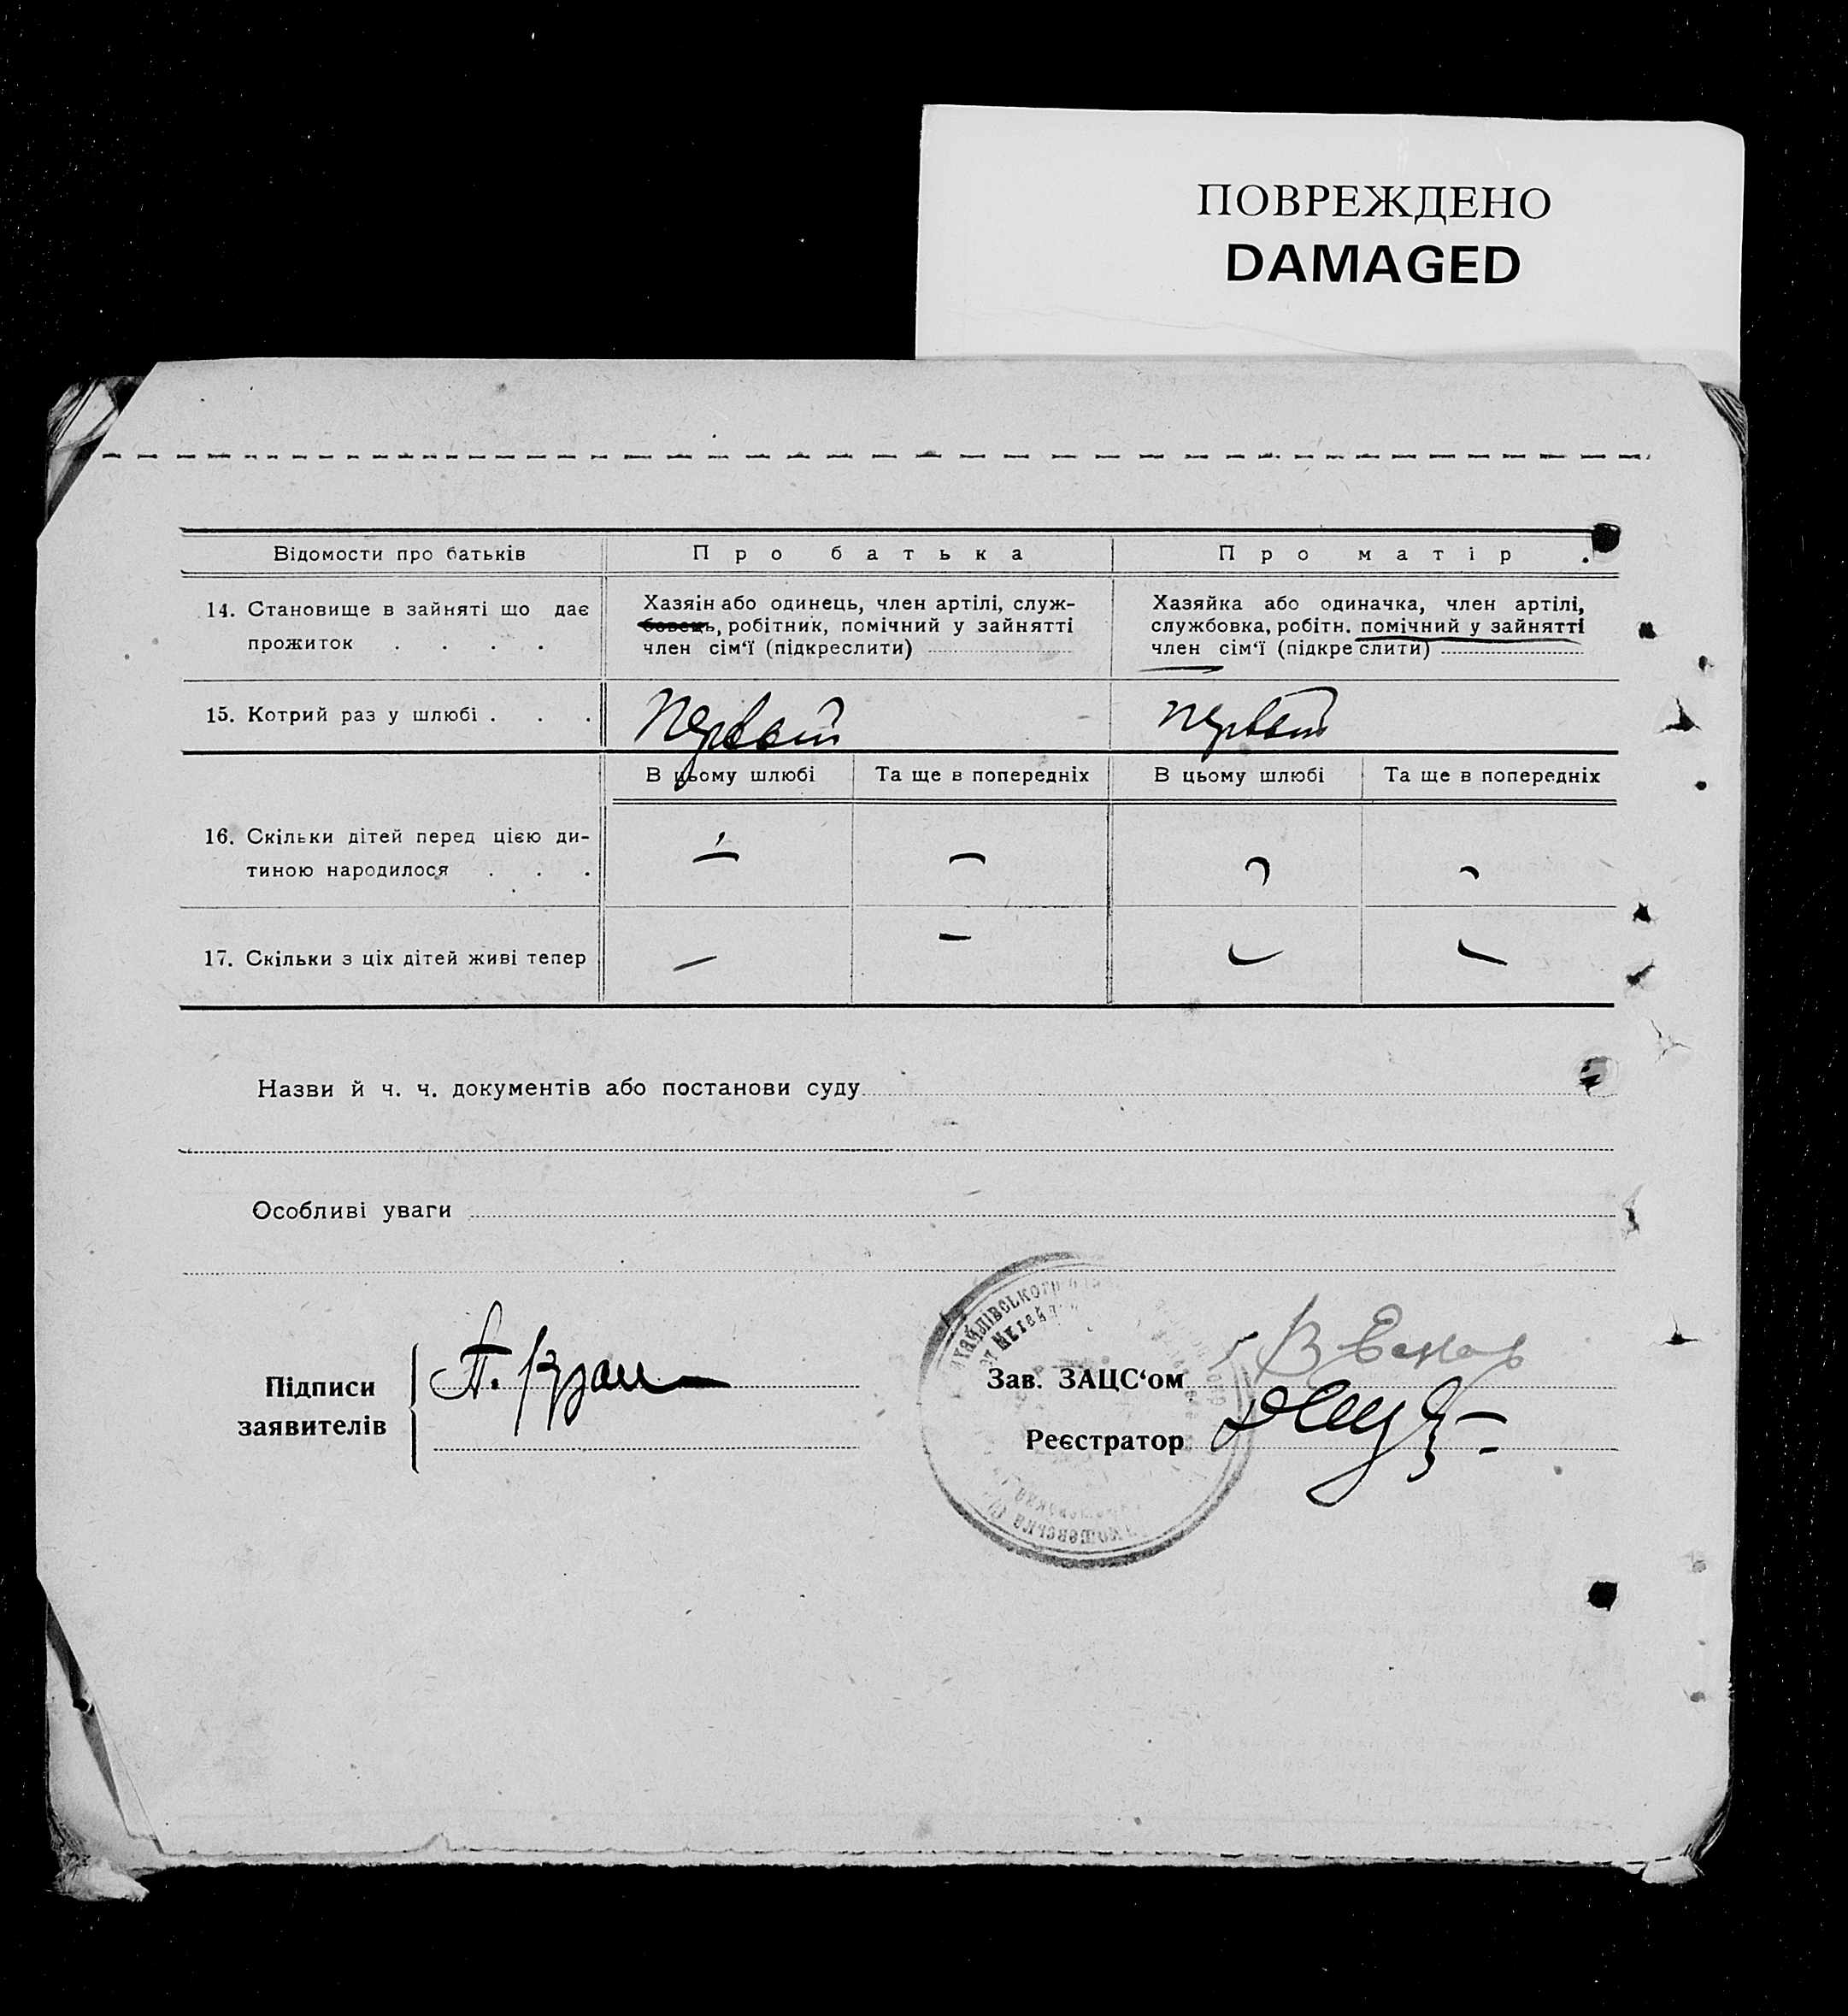 ПОВРЕЖДЕНО
DAMAGED
Відомости про батьків
Про батька
Про матір
14. Становище в зайняті що дає
прожиток . . . .
Хазяін або одинець, член артілі, служ-
бовець, робітник, помічний у зайнятті
член сім‘ї (підкреслити)
Хазяйка або одиначка, член артілі,
службовка, робітн. помічний у зайнятті
член сім‘ї (підкреслити)
15. Котрий раз у шлюбі . . .
Первый
первый
В цьому шлюбі
Та ще в попередніх
В цьому шлюбі
Та ще в попередніх
16. Скільки дітей перед цією ди-
тиною народилося . . .
— — — —
17. Скільки з ціх дітей живі тепер
— — — —
Назви й ч. ч. документів або постанови суду
Особливі уваги
Підписи
заявителів
Зав. ЗАЦС‘ом
Реєстратор